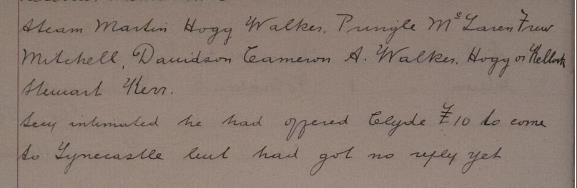 Steam Martin Hogg Walker, Pringle McLaren Frew
Mitchell, Davidson Cameron A. Walker, Hogg or Kellock
Stewart Kerr.
Secy intimated he had offered Clyde £10 to come
to Tynecastle but had got no reply yet